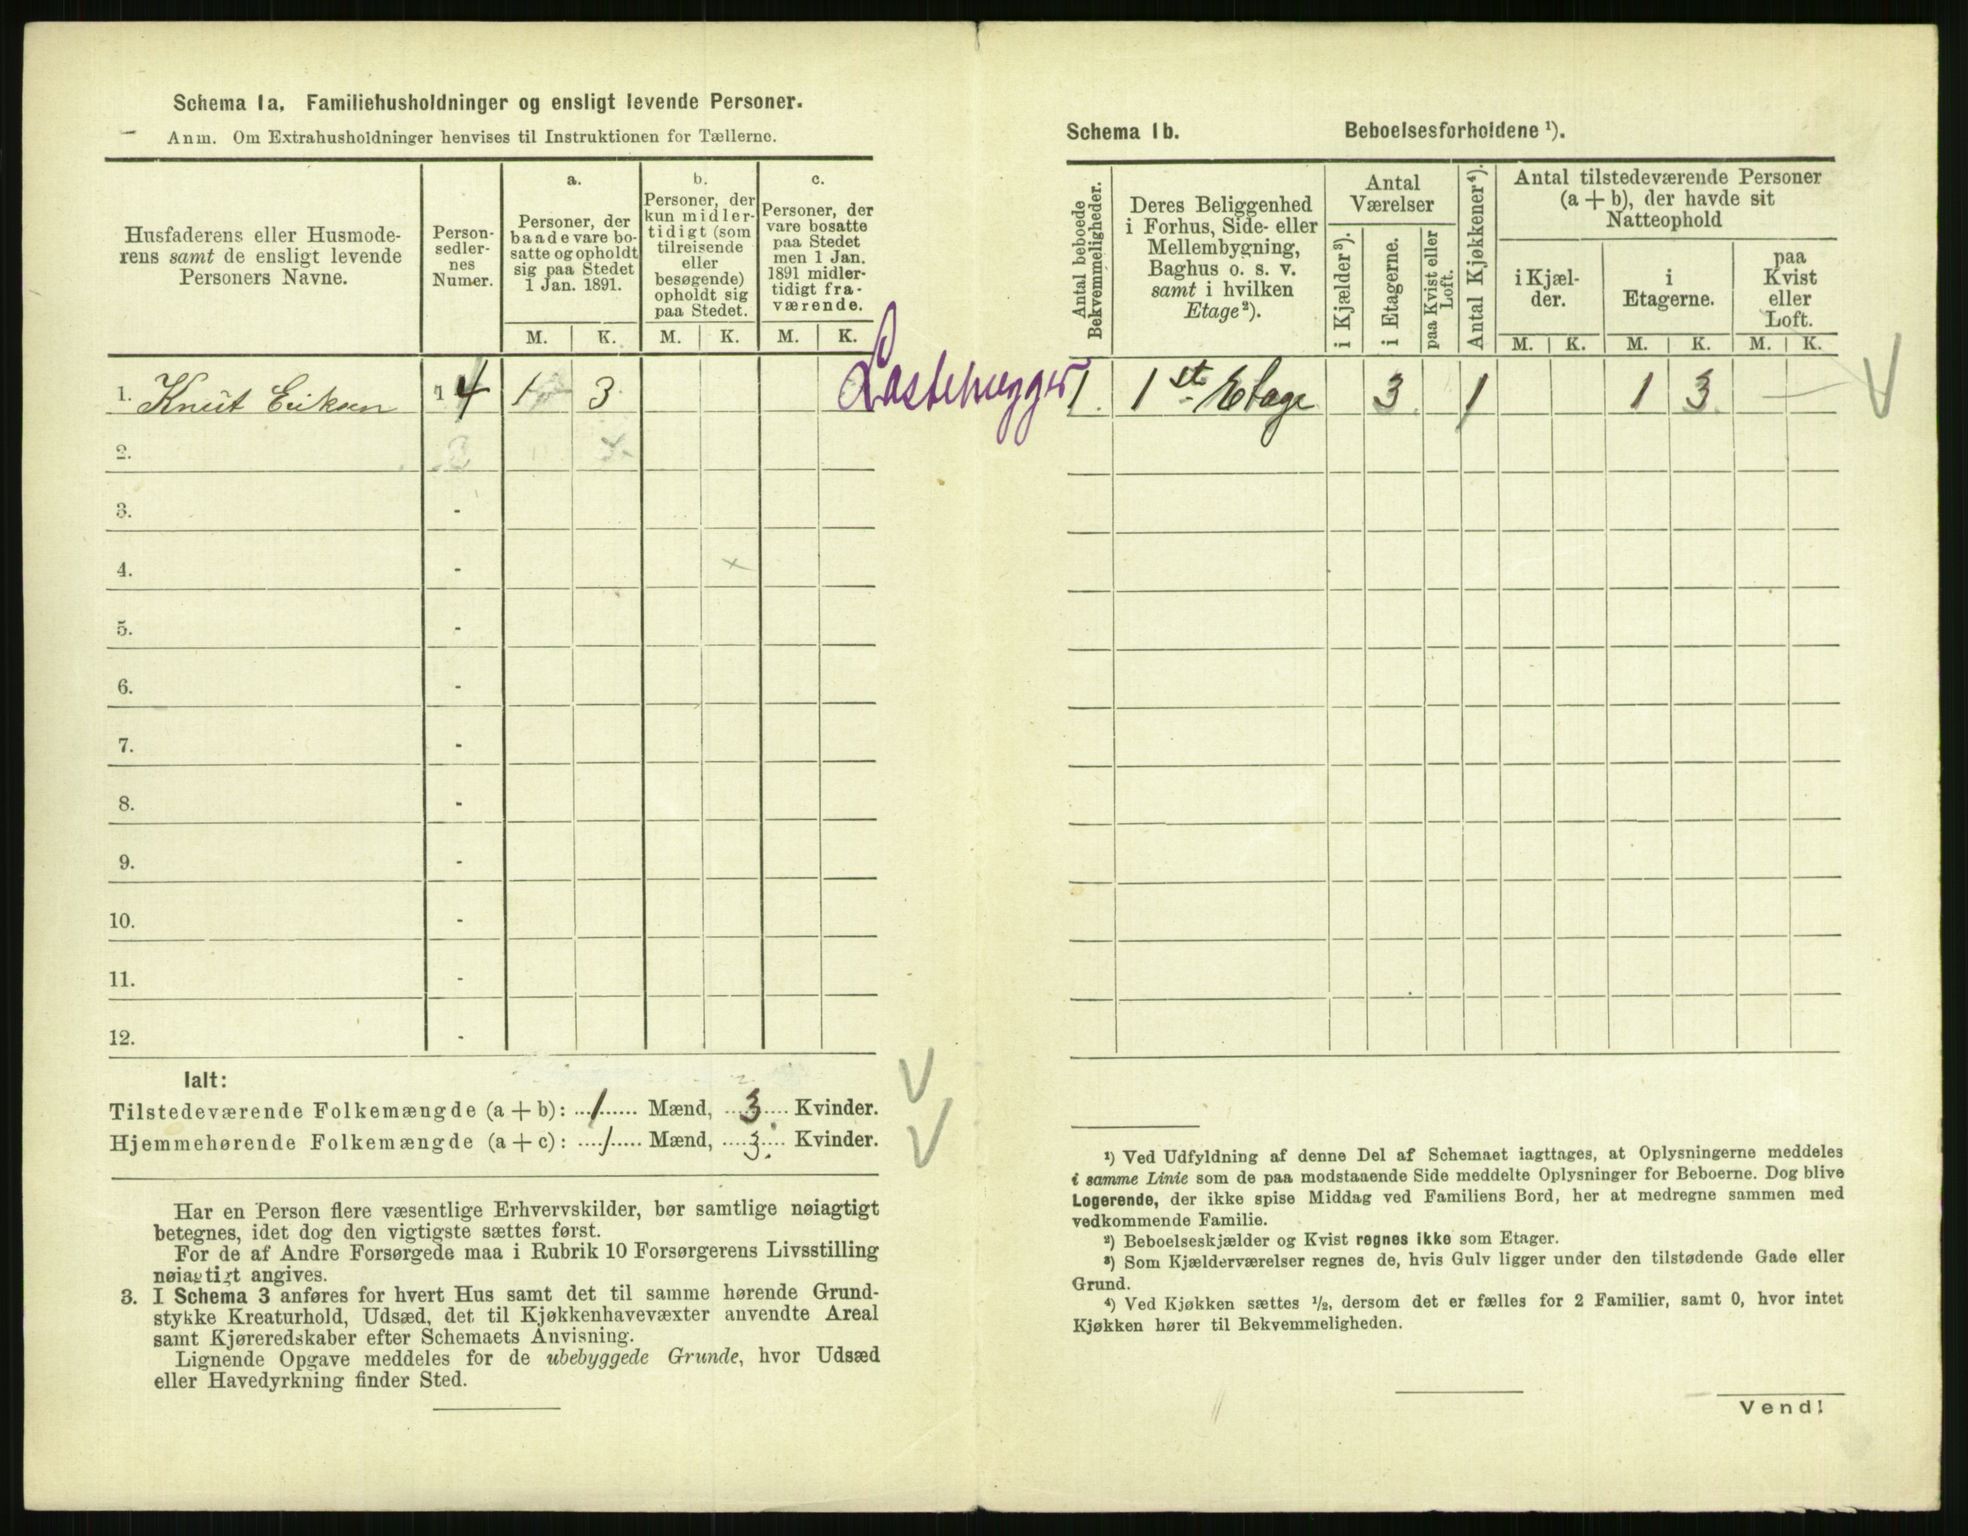 Schema 1a. Familiehusholdninger og ensligt levende Personer.
Anm. Om Extrahusholdninger henvises til Instruktionen for Tællerne.
Husfaderens eller Husmode-
rens samt de ensligt levende
Personers Navne.
Person-
sedler-
nes
Numer.
a.
Personer, der
baade vare bo-
satte og opholdt
sig paa Stedet
1 Jan. 1891.
b.
Personer, der
kun midler-
tidigt (som
tilreisende
eller
besøgende)
opholdt sig
paa Stedet.
c.
Personer, der
vare bosatte
paa Stedet
men 1 Jan.
1891 midler-
tidigt fra-
værende.
M. K. M. K. M. K.
1. Knut Eriksen 1 4 1 3
2.
3. -
4. - ×
5. -
6. -
7. -
8. -
9. -
10. -
11. -
12. -
Ialt:
Tilstedeværende Folkemængde (a + b): 1 Mænd, 3 Kvinder.
Hjemmehørende Folkemængde (a + c): 1 Mænd, 3 Kvinder.
Har en Person flere væsentlige Erhvervskilder, bør samtlige nøiagtigt
betegnes, idet dog den vigtigste sættes først.
For de af Andre Forsørgede maa i Rubrik 10 Forsørgerens Livsstilling
nøiagtigt angives.
3. I Schema 3 anføres for hvert Hus samt det til samme hørende Grund-
stykke Kreaturhold, Udsæd, det til Kjøkkenhavevæxter anvendte Areal
samt Kjøreredskaber efter Schemaets Anvisning.
Lignende Opgave meddeles for de ubebyggede Grunde, hvor Udsæd
eller Havedyrkning finder Sted.
Schema 1b. Beboelsesforholdene ¹).
Antal beboede
Bekvemmeligheder.
Deres Beliggenhed
i Forhus, Side- eller
Mellembygning,
Baghus o. s. v.
samt i hvilken
Etage²).
Antal
Værelser
i Kjælder³).
i Etagerne.
paa Kvist eller
Loft.
Antal Kjøkkener⁴).
Antal tilstedeværende Personer
(a + b), der havde sit
Natteophold
i Kjæl-
der.
i
Etagerne.
paa
Kvist
eller
Loft.
M. K. M. K. M. K.
1. 1ste Etage 3 1 1 3
¹) Ved Udfyldning af denne Del af Schemaet iagttages, at Oplysningerne meddeles
i samme Linie som de paa modstaaende Side meddelte Oplysninger for Beboerne. Dog blive
Logerende, der ikke spise Middag ved Familiens Bord, her at medregne sammen med
vedkommende Familie.
²) Beboelseskjælder og Kvist regnes ikke som Etager.
³) Som Kjælderværelser regnes de, hvis Gulv ligger under den tilstødende Gade eller
Grund.
⁴) Ved Kjøkken sættes ½, dersom det er fælles for 2 Familier, samt 0, hvor intet
Kjøkken hører til Bekvemmeligheden.
Vend!